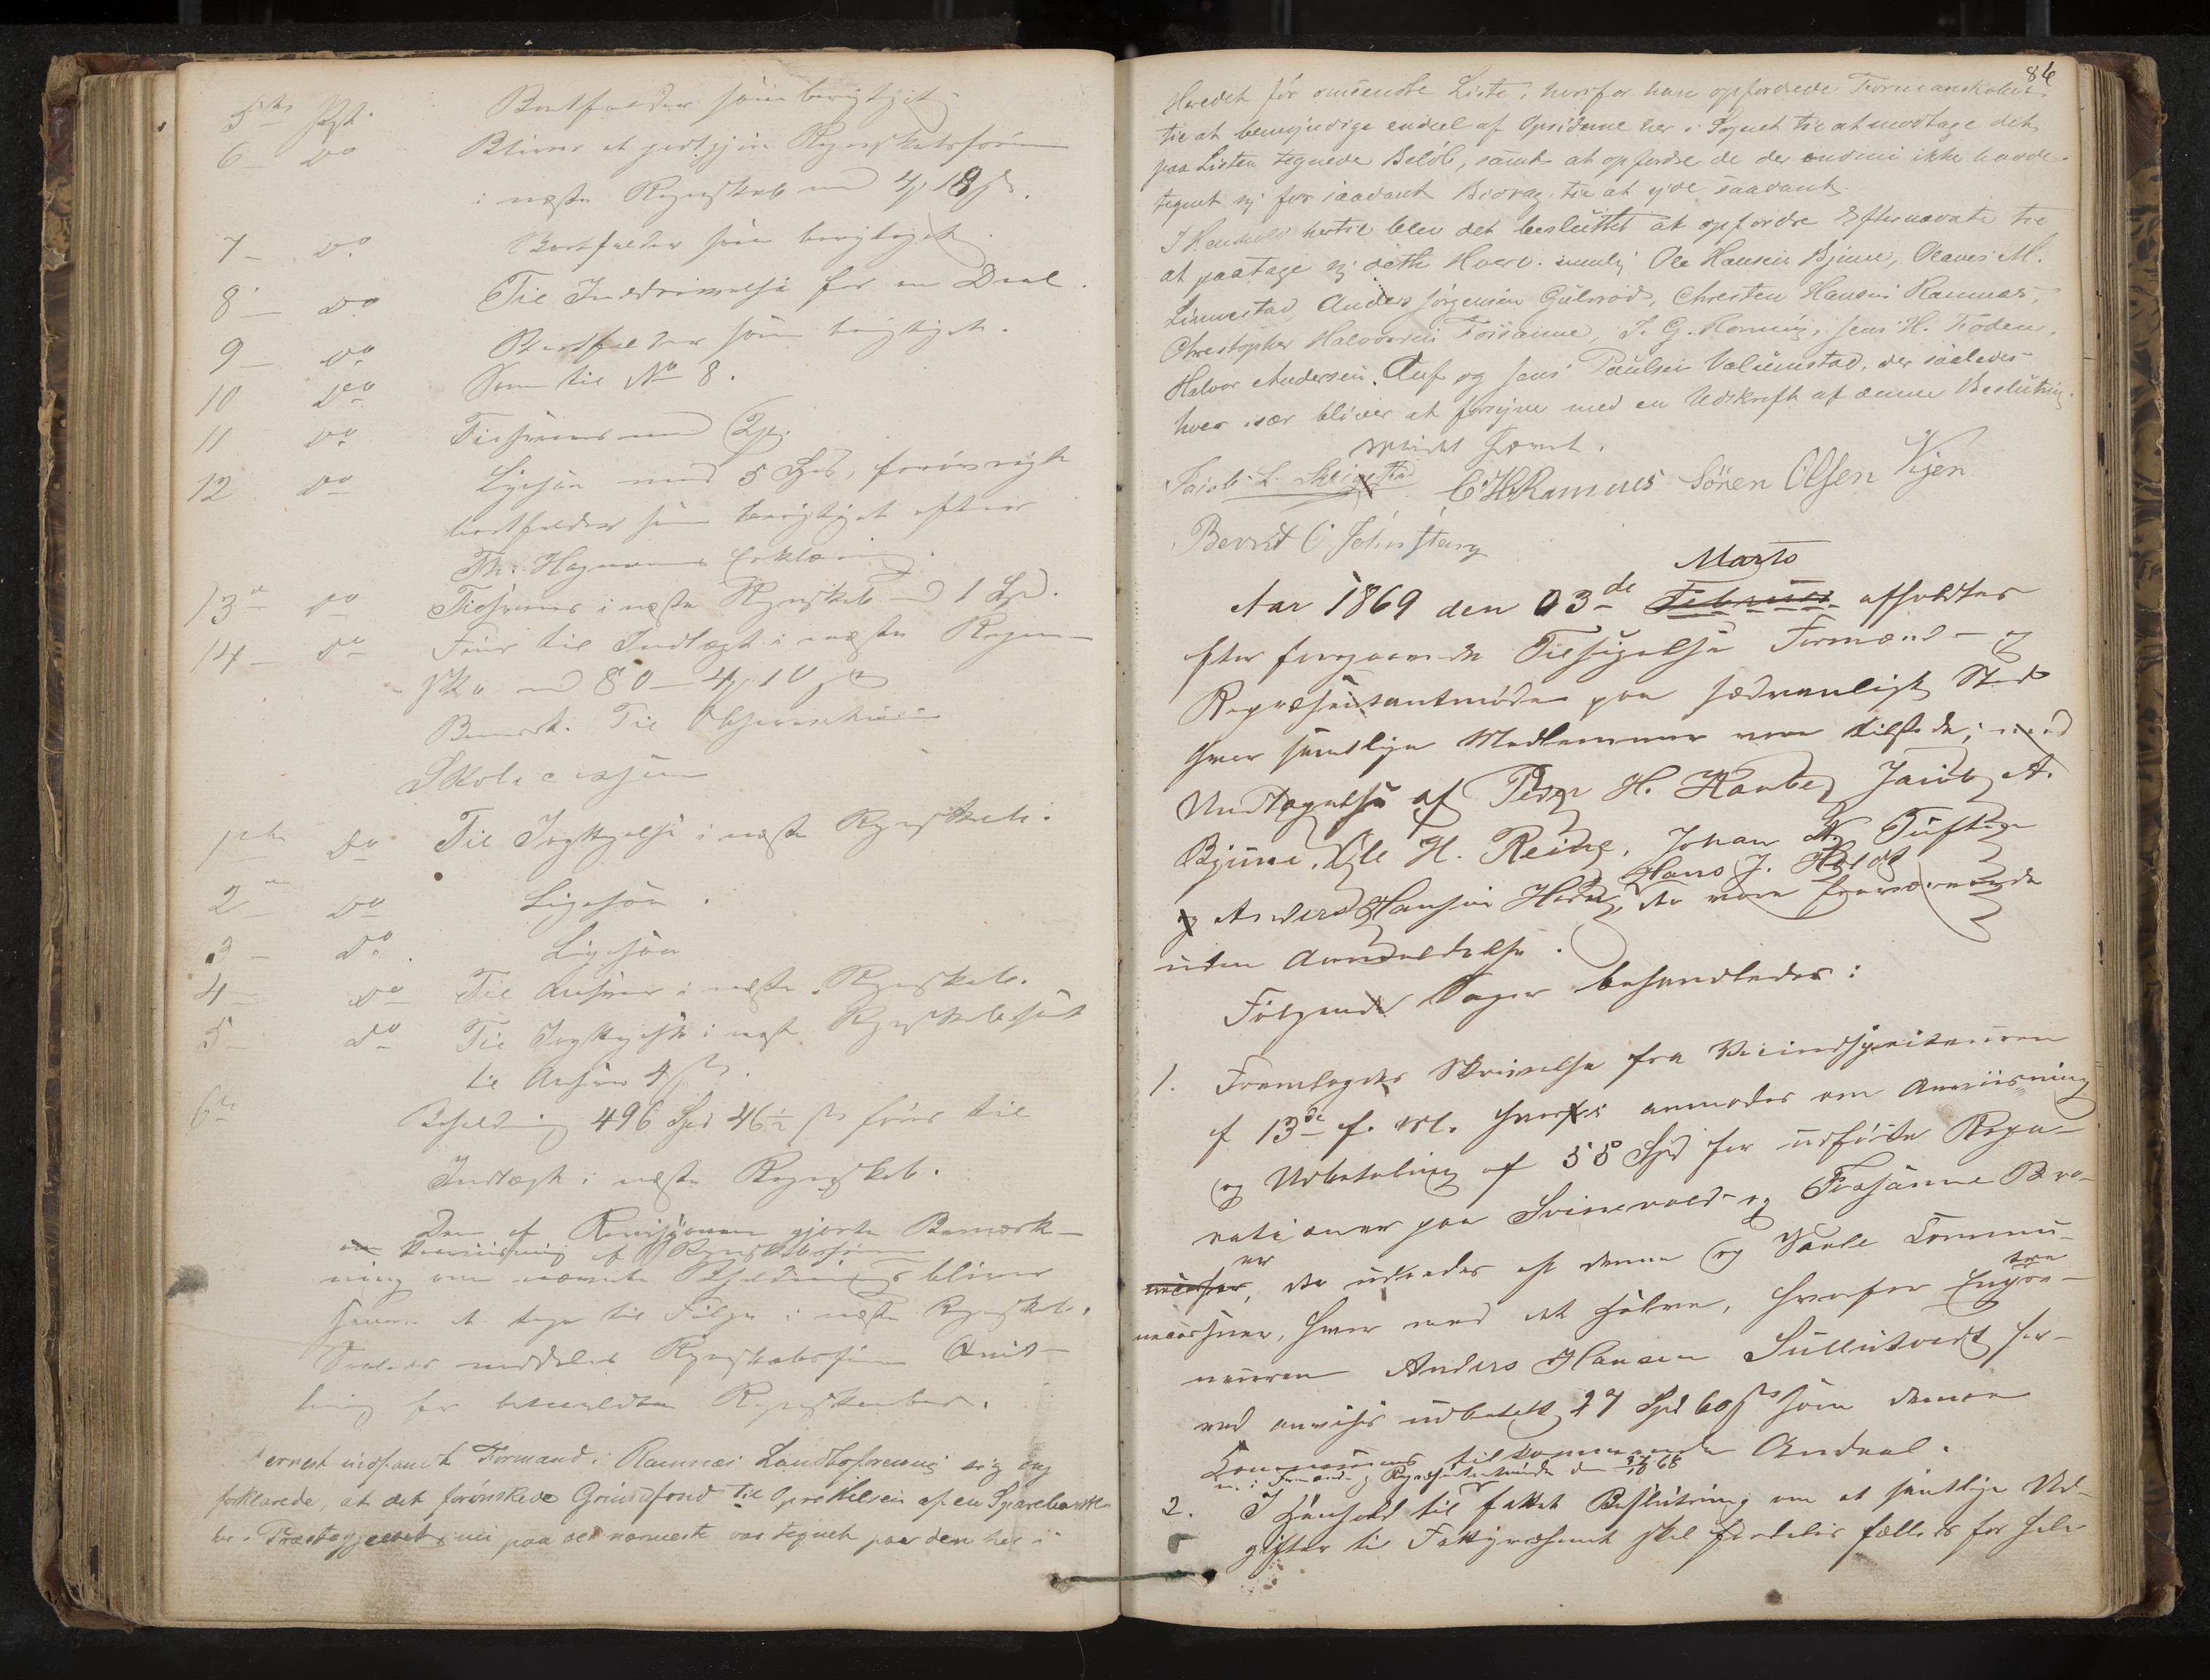 5te Post. Bortfalder som berigtiget
6 - Do Bliver at godtgjøre Regnskabsføreren
i næste Regnskab med 4 18 s.
7 - Do Bortfalder som berigtiget
8 - Do Til Inddrivelse for en Deel.
9 - Do Bortfalder som berigtiget.
10 Do Som til No 8.
11 Do Tilsvares med 2
12 Do Ligesaa med 5 Spd, forøvrigt
bortfalder som berigtiget efter
Th. Hagmanns Erklæring.
13de Do Tilsvares i næste Regnskab med 1 Spd.
14 - Do Føres til Indtægt i næste Regn-
skab med 80 - 4 10
Bemærk. Til Observation
Skolecassen
1ste Do Til Iagttagelse i næste Regnskab.
2den Do Ligesaa.
3 - Do. Ligesaa
4 - Do Til Ansvar i næste Regnskab.
5 - Do Til Iagttagelse i næste Regnskab samt
til Ansvar 4 s
6te Beholdning 496 Spd 46½ s føres til
Indtægt i næste Regnskab.
Den af Revisionen gjorte Bemærk-
om Anviisning af Regnskabsføreren
ning om nævnte Beholdning bliver
at tage til Følge i næste Regnskab.
Saaledes meddeles Regnskabsføreren Qvit-
tering for bemeldte Regnskaber.
Dernest indfandt Formand i Ramnæs Landboforening sig og
forklarede, at det forønskede Grundfond til Oprettelsen af en Sparebank
her i Præstegjeldet nu paa det nærmeste var tegnet paa den her i
86
Heredet för omsendte Liste, hvorfor han opfordrede Formandskabet
til at bemyndige endeel af Opsiderne her i Sognet til at modtage det
paa Listen tegnede Beløb, samt at opfordre de der endnu ikke havde
tegnet sig for saadant Bidrag til at yde saadant.
I Henhold hertil blev det besluttet at opfordre Efternævnte til
at paatage sig dette Hverv. nemlig Ole Hansen Bjune, Olaves M.
Linnestad, Anders Jørgensen Gulsrød, Christen Hansen Ramnæs,
Christopher Halvorsen Fossanne, S. G. Rønning, Jens H. Foden,
Halvor Andersen Auf og Jens Paulsen Valumstad, der saaledes
hver især bliver at forsyne med en Udskrift af denne Beslutning.
Mødet hævet.
Jacob L. C. H. Ramnes Sören Olsen Kjen
Bernt O
Marts
Aar 1869 den 03de Februar afholdtes
efter foregaaende Tilsigelse Formænd- og
Repræsentantmøde paa sædvanligt Sted
hvor samtlige Medlemmer vare tilstede; med
Undtagelse af Peder H. Haabe, Jacob A.
Bjune, Ole H. Reine, Johan N. Tufte
Hans J. Holdt
og Anders Hansen Hedz, der vare fraværende
uden Anmeldelse.
Følgende Sager behandledes:
1. Fremlagdes Skrivelse fra Veiinspecteuren
af 13de f. M. hvori anmodes om Anviisning
og Udbetaling af 55 Spd for udførte Repa-
rationer paa Svinevold- og Fossanne Bro-
er
, der udredes af denne og Vaale Commu-
ner, hver med det halve, hvorfor Entre-
neuren Anders Hansen Sullutvedt her-
ved anvises udbetalt 27 Spd 60 s som denne
Communes tilkommende Andeel.
i Formænd- og Repræsentantmøde den 68
2. I Henhold til fattet Beslutning om at samtlige Ud-
gifter til Fattigvæsenet skal fordeles fælleds for hele